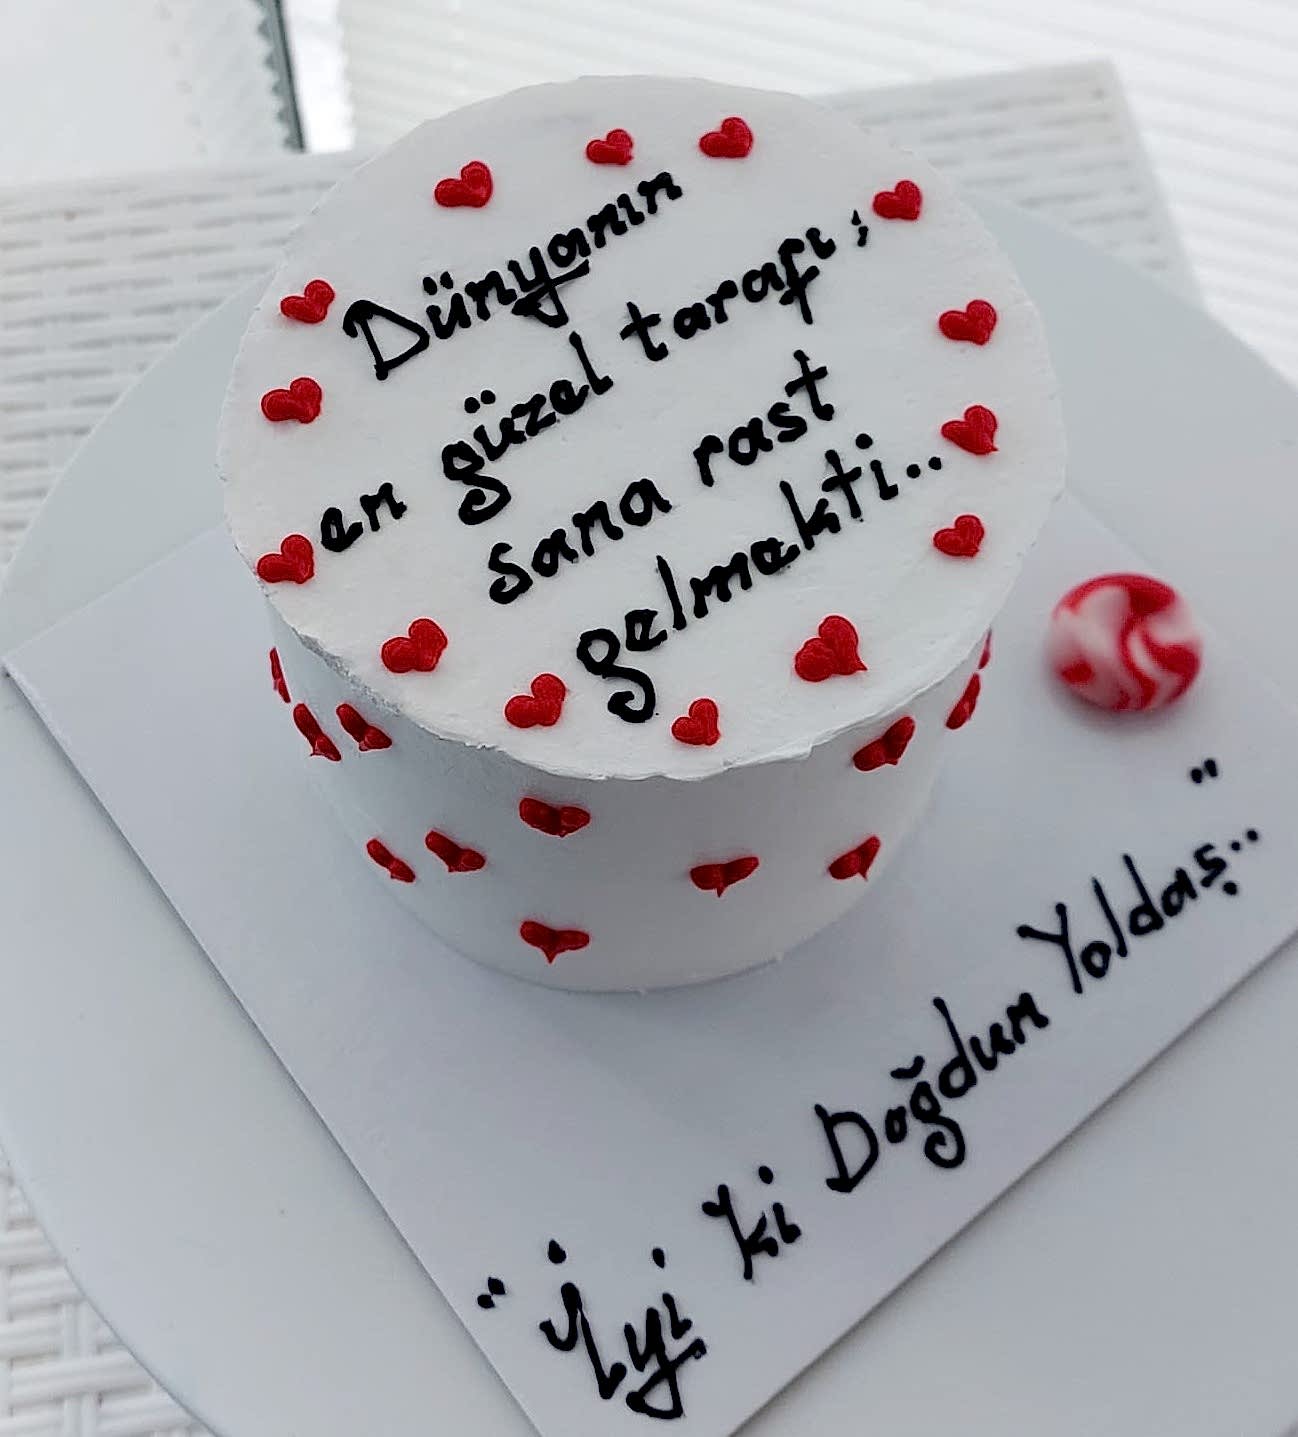 Dünyanın
en güzel tarafı;
sana rast
gelmekti..
"İyi ki Doğdun Yoldaş.."